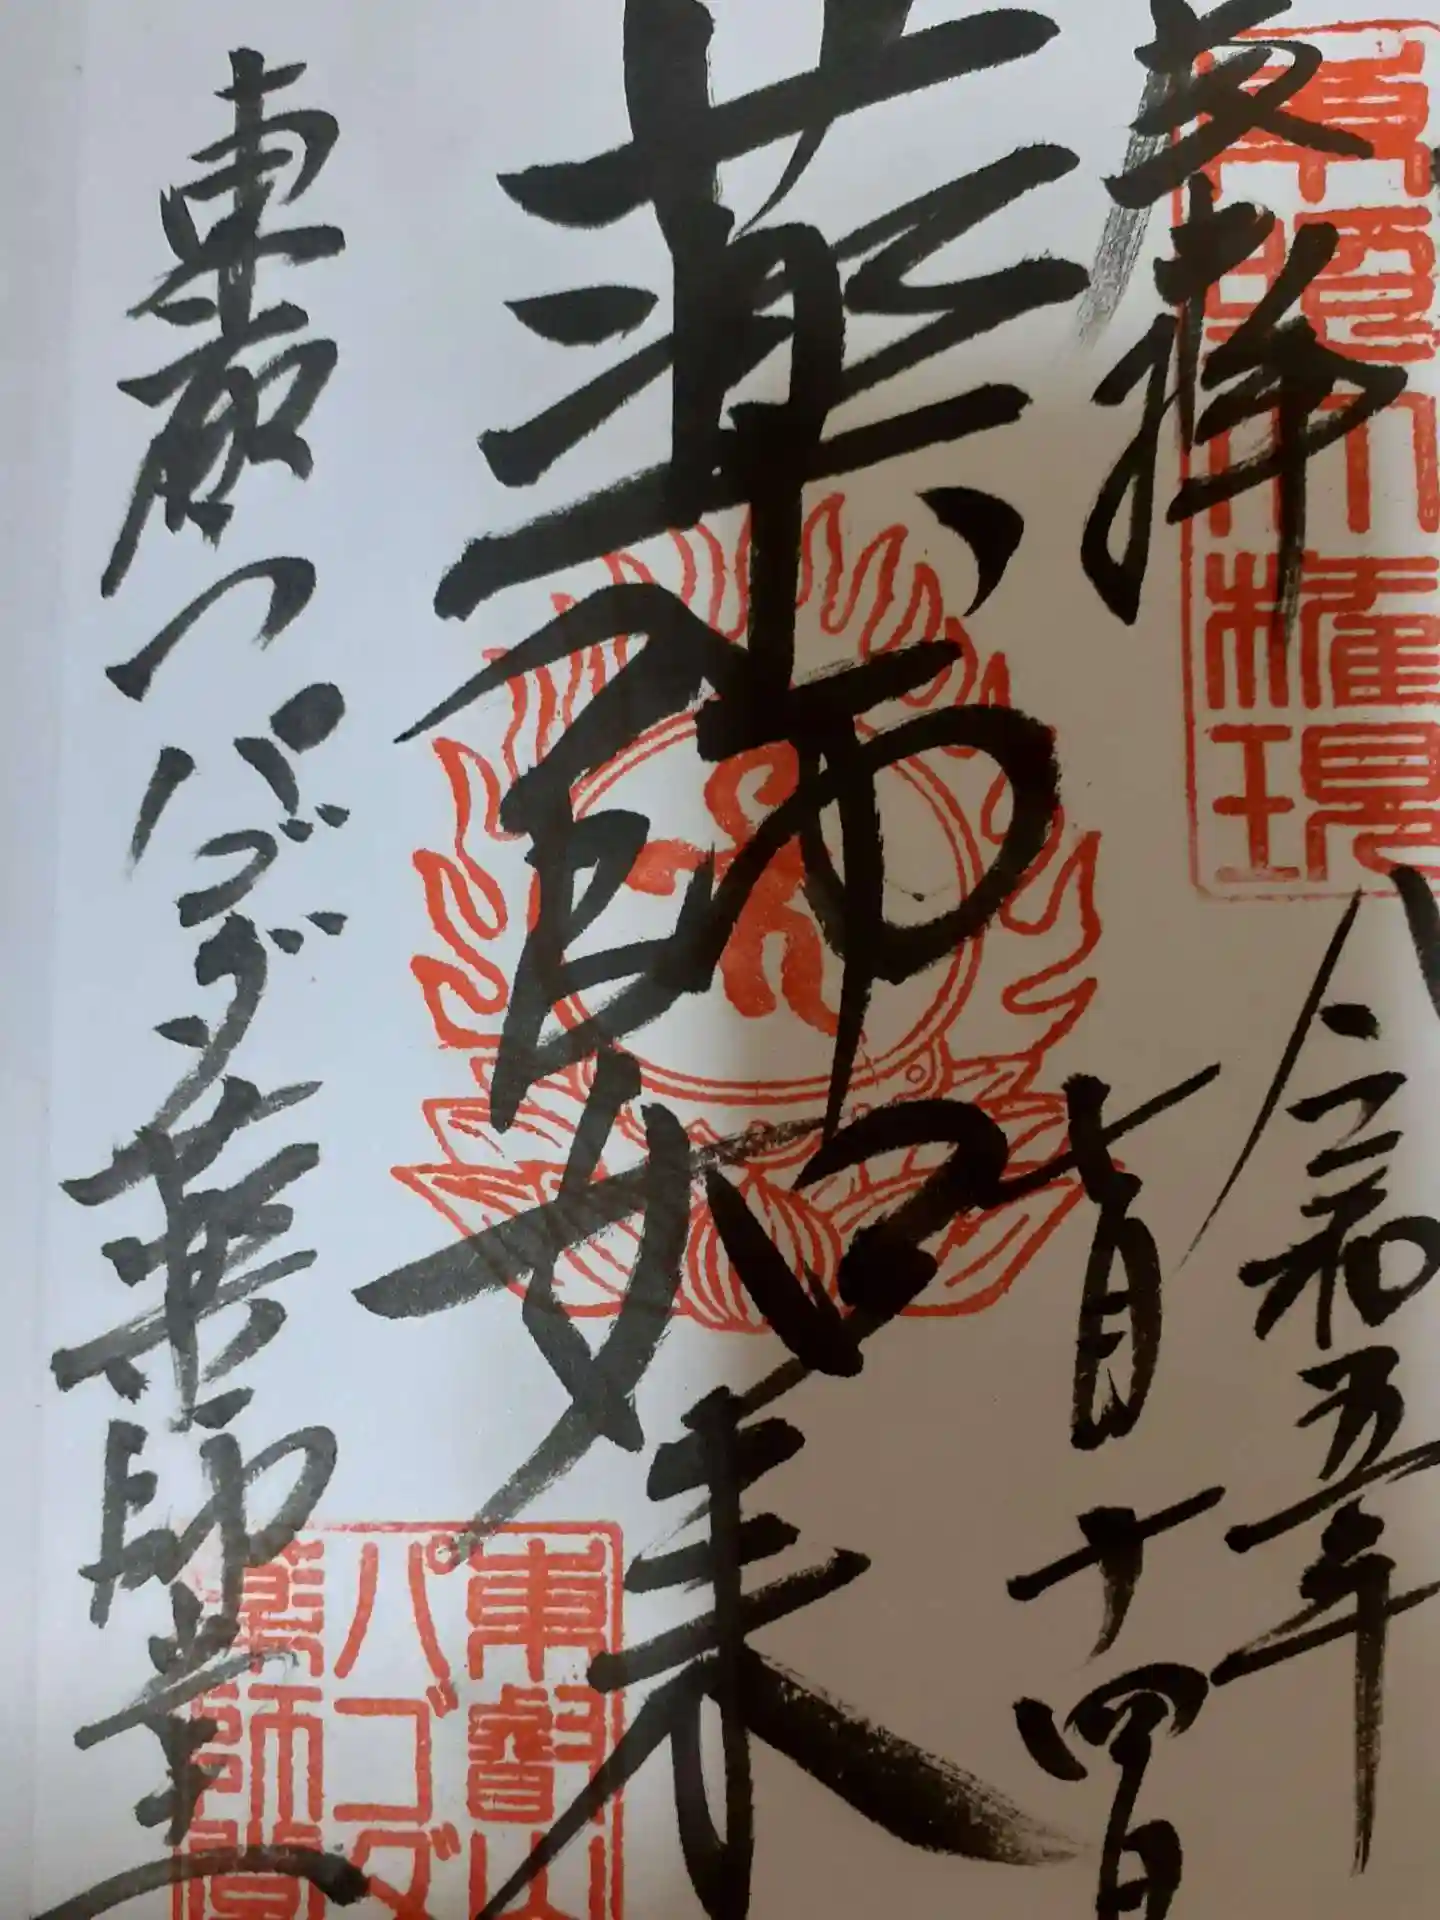 奉拝
東照大権現
令和五年
七月十四日
薬師如来
東叡山
パゴダ
薬師堂
東都
パゴダ薬師堂